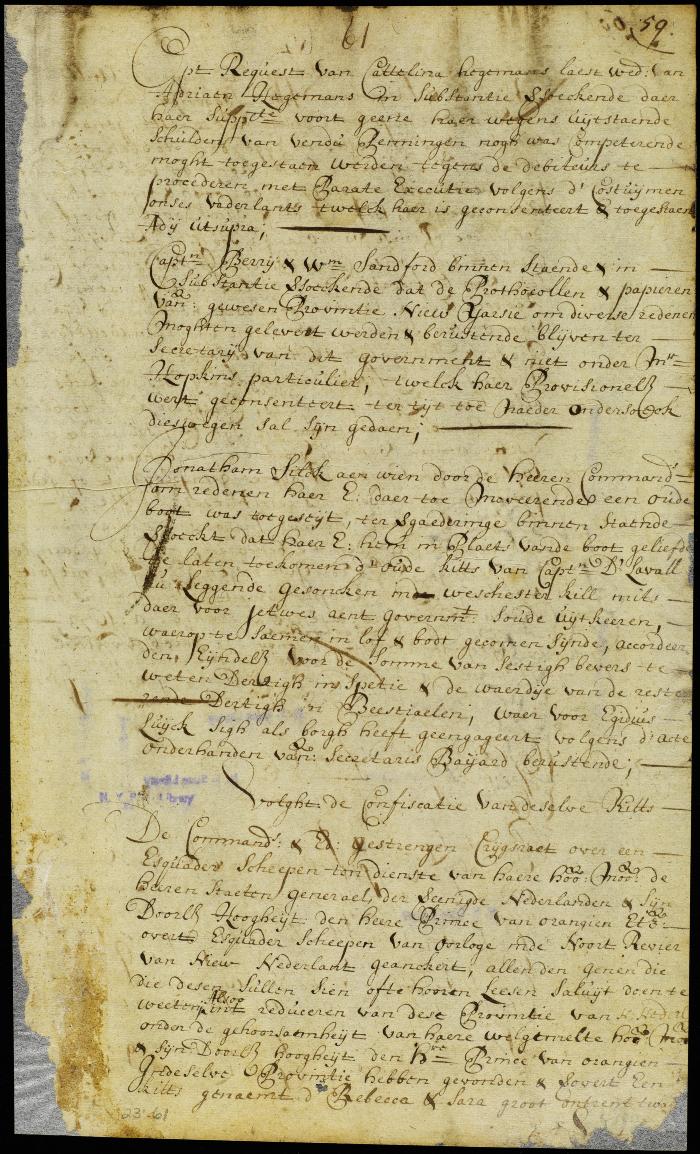 61
59.
Opt Request van Cattelina hegemans laest wed: van
Adriaen Hegemans in Substantie versoeckende daer
haer Supplte voort geene haer wegens uijtstaende
Schulden van vendu Penningen nogh was Competerende
moght toegestaen werden tegens de debiteurs te
procederen, met Parate Executie volgens d' Costuijmen
onses vaderlants twelck haer is geconsenteert & toegestaen
Adij utsupra,
Captn Berrij & Wm Sandford binnen Staende & in
Substantie versoeckende dat de Prothocollen & papieren
van: gewesen Provintie Nieuw Yarsie om diverse redenen
moghten gelevert werden & berustende blijven ter
Secretarij van dit government & niet onder Mr
Hopkins particulier, twelck haer Provisionelt
wert geconsenteert ter tijt toe naeder ondersoeck
dieswegen sal sijn gedaen;
Jonatham Silck aen wien door de heeren Command:
om redenen haer E: daer toe moverende een oude
boot was toegeseijt, ter vergaederinge binnen Staende
versoeckt dat haer E: hem in Plaets vande boot geliefde
te laten toekomen d' oude kitts van Captn D' Lavall
nu leggende gesoncken inde weschester kill mits
daer voor ietwes aent governmt: soude uijtkeeren,
waerop te saemen in lof & bodt gecomen sijnde, accordeer
den, Eijndelt voor de Somme van Sestigh bevers te
weten Dertigh in Spetie & de waerdije van de reste
rende Dertigh in Beestiaelen, waer voor Egidius
Luijck sigh als borgh heeft geengageert volgens d' acte
onderhanden van: Secretaris Baijard berustende,
Volght de Confiscatie van deselve Kitts
De Command: & Ed: gestrengen Crijgsraet over een
Esquader Scheepen ten dienste van haere hoo: Moo: de
heeren Staeten generael der Vereenigde Nederlanden & Sijn
Doorlt Hoogheijt den heere Prince van orangien Etc:
overt Esquader Scheepen van oorloge inde Noort Revier
van Nieuw Nederlant geanckert, allen den geenen die
die desen Sullen Sien ofte hooren Leesen Saluijt doen te
weeten, Alsoo int reduceren van dese Provintie van N: Nederlt
onder de gehoorsaemheijt van haere welgemelte hoo: Moo:
& Sijn Doorlt hoogheijt den hre Prince van orangien
In deselve Provintie hebben gevonden & verovert Een
kitts genaemt d' Rebecca & Sara groot ontrent
23-61